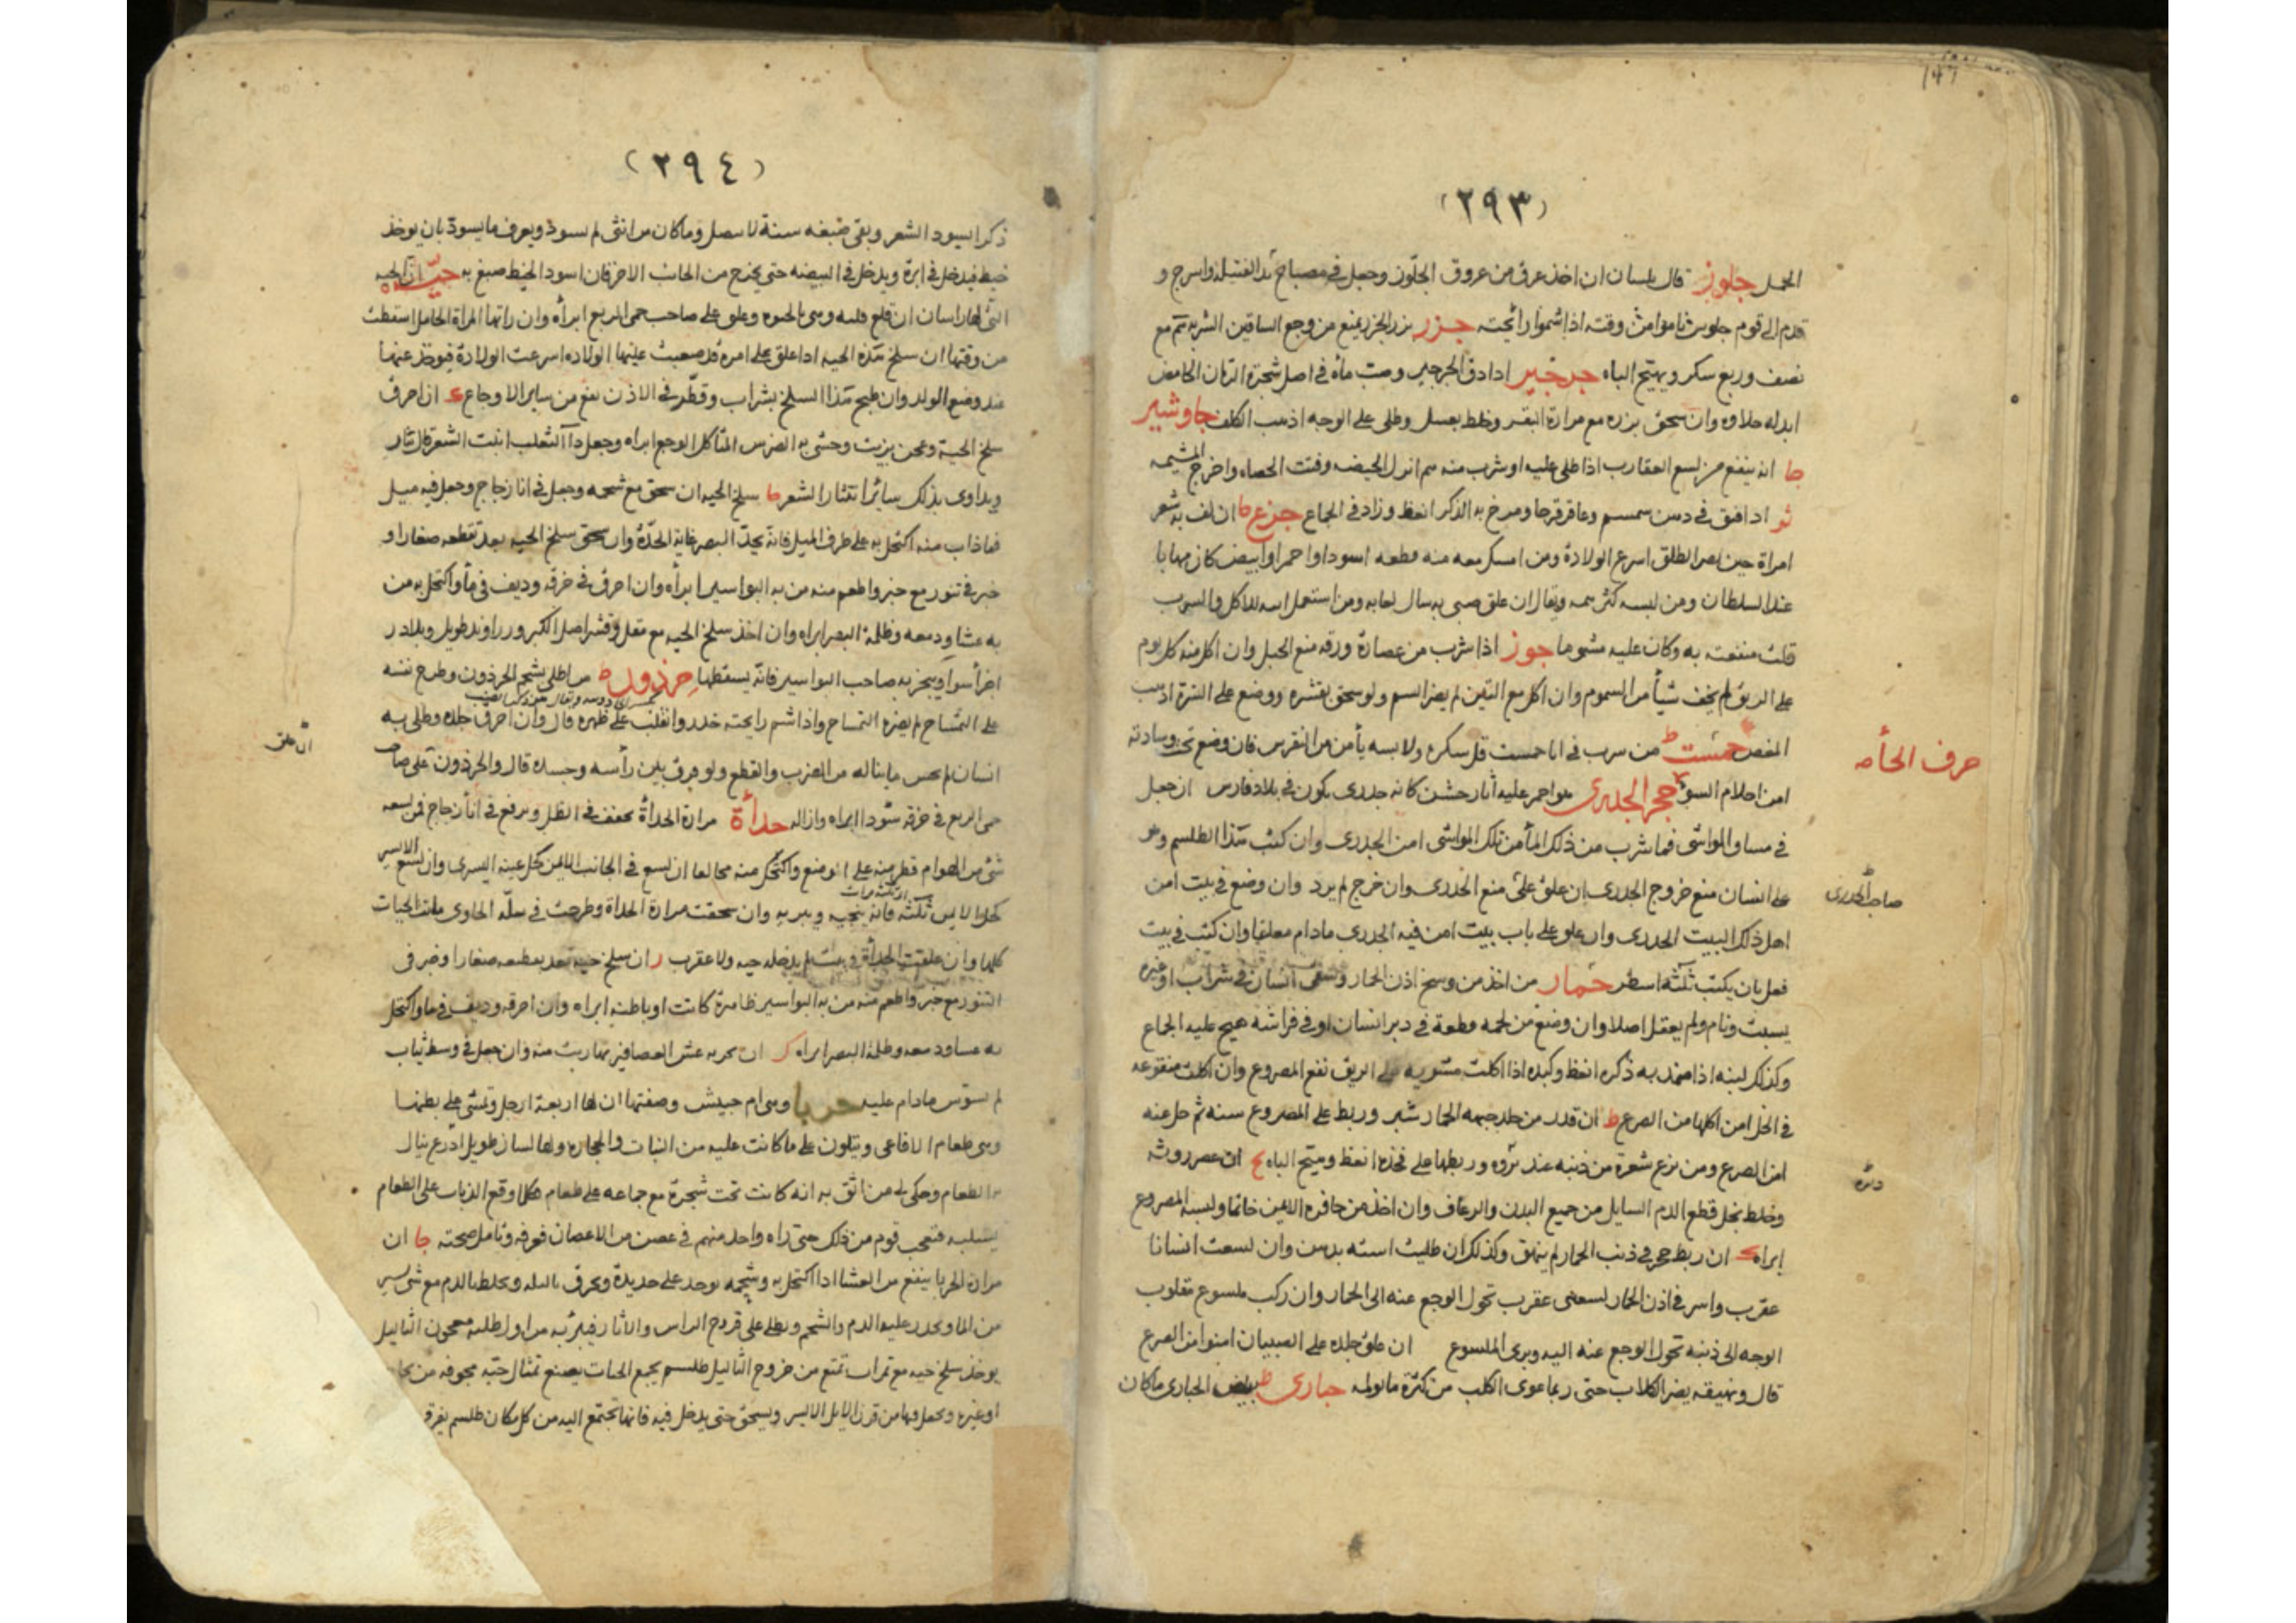 (٢٩٣)
الحمل جلوز قال بلسان ان اخذ عرق من عروق الجلوز وجعل في مصباح بدل الفتيلة واسرج و
قدم الى قوم جلوس ناموا من وقته اذا شموا رائحته جزر بزر الجزر ينفع من وجع الساقين الشربة مع
نصف وربع سكر ويهيج الباه جرجير اذا دق الجرجير وصب ماه في اصل شجرة الرمان الحامض
ابدله حلاوه وان سحق بزره مع مرارة البقر وخلط بعسل وطلى على الوجه اذهب الكلف جاوشير
انه ينفع من لسع العقارب اذا طلى عليه او شرب منه درهم انزل الحيض وفتت الحصاه واخرج المشيمه
اذا فتق في دهن سمسم وعاقرقرحا ومرخ به الذكر انعظ وزاد في الجماع جزع ان لف به شعر
امراة حين الطلق اسرع الولادة ومن امسك معه منه قطعه اسود او احمر او ابيض كان مهابا
عند السلطان ومن لبسه كثر همه ويقال ان علق صبي به سال لعابه ومن استعمل اسه للاكل والشرب
قلت منفعته به وكان عليه مشوما جوز اذا شرب من عصارة ورقه منع الحبل وان اكل منه كل يوم
على الريق لم يخف شيأ من السموم وان اكل مع التين لم يضر السم ولو سحق بقشره ووضع على السرة اذهب
المغص جمست من شرب في انا جمست قل سكره ولابسه يأمن من النقرس فان وضع تحت وسادته
امن احلام السوء حجر الجدري هو احمر عليه اثار خشن كانه جدرى يكون في بلاد فارس ان جعل
في مساقي المواشي فما شرب من ذلك المأ من تلك المواشي امن الجدرى وان كتب هذا الطلسم وهو
على انسان منع خروج الجدرى ان علق على منع الجدرى وان خرج لم يرد وان وضع في بيت امن
اهل ذلك البيت الجدرى وان علق على باب بيت امن فيه الجدرى مادام معلقا وان كتب في بيت
فعل بان يكتب ثلثه اسطر حمار من اخذ من وسخ اذن الحمار وسقى انسان في شراب او غيره
يسبت ونام ولم يعقل اصلا وان وضع من لحمه قطعة في دبر انسان او في فراشه هيج عليه الجماع
وكذلك لبنه اذا ضمد به ذكره انعظ وكبده اذا اكلت مشويه على الريق نفع المصروع وان اكلت منقوعه
في الخل امن اكلها من الصرع ط ان قدر من جلد جبهه الحمار شبر وربط على المصروع سنه ثم حل عنه
امن الصرع ومن نزع شعرة من ذنبه عند نزوه وربطها على فخذه انعظ وهيج الباه ان عصر روثه
وخلط بخل قطع الدم السايل من جميع البدن والرعاف وان اخذ من حافره الايمن خاتما ولبسه المصروع
ابراه ان ربط حجر في ذنب الحمار لم ينهق وكذلك ان طليت استه بدهن وان لسعت انسانا
عقرب واسر في اذن الحمار لسعتني عقرب تحول الوجع عنه الى الحمار وان ركب ملسوع مقلوب
الوجه الى ذنبه تحول الوجع عنه اليه وبرى الملسوع ان علق جلده على الصبيان امنوا من الصرع
قال ونهيقه يضر الكلاب حتى ربما عوى الكلب من كثرة ما يولمه حبارى بيض الحبارى ما كان
حرف الحأ
صاحب الجدرى
(٢٩٤)
ذكرا يسود الشعر ويبقى صبغه سنة لا ينصل وما كان من انثى لم يسود ويعرف ما يسود بان يوخذ
خيط فيدخل في ابرة ويدخل في البيضه حتى يخرج من الجانب الاخر فان اسود الخيط صبغ به حيّه ان الحيه
التي لها راسان ان قلع قلبه وهي بالحيوه وعلق على صاحب حمى الربع ابرأه وان راتها المراة الحامل اسقطت
من وقتها ان سلخ هذه الحيه اذا علق على امره قد صعبت عليها الولاده اسرعت الولادة فيوخذ عنها
عند وضع الولد وان طبخ هذا السلخ بشراب وقطر في الاذن نفع من ساير الاوجاع ان احرق
سلخ الحية وعجن بزيت وحشى به الضرس المتأكل الوجع ابراه وجعل داآ الثعلب انبت الشعر
ويداوى بذلك ساير انتثار الشعر سلخ الحيه ان سحق مع شحمه وجعل في انا زجاج وجعل فيه ميل
فما ذاب منه اكتحل به على طرف الميل فانه يحد البصر غاية الحدة وان سحق سلخ الحيه بعد تقطعه صغارا و
خبز في تنور مع خبز واطعم منه من به البواسير ابرأه وان احرق في خرقه وديف في مأ واكتحل به من
به عشا ودمعه وظلمة البصر ابراه وان اخذ سلخ الحيه مع مقل وقشر اصل الكبر وزراوند طويل وبلادر
اجزأ سوآ ويبخر به صاحب البواسير فانه يسقطها حرذون من اطلى بشحم الحرذون وطرح نفسه
على التمساح لم يضره التمساح واذا شم رايحته خدر وانقلب على ظهره قال وان احرق جلده وطلى به
انسان لم يحس ما يناله من الضرب والقطع ولو فرق بين رأسه وجسده قال والحرذون على صاحب
حمى الربع في خرقه سودا ابراه وازاله حدأة مرارة الحدأة تجفف في الظل وترفع في انأ زجاج فمن لسعه
شي من الهوام قطر منه على الموضع واكتحل منه مخالفا ان لسع في الجانب الايمن كحل عينه اليسرى وان لسع الايسر
كحل الايمن ثلثه فانه ينجيه ويبريه وان سحقت مرارة الحداة وطرحت في سلّه الحاوى ماتت الحيات
كلها وان علقت الحدأة في بيت لم يدخله حيه ولا عقرب ر ان سلخ حيه بعد تقطعه صغارا وخبز في
التنور مع خبز واطعم منه من به البواسير ظاهرة كانت او باطنه ابراه وان احرقه وديف في ما واكتحل
به عشا ودمعه وظلمة البصر ابراه ان بخر به عش العصافير تهاربت منه وان جعل في وسط ثياب
لم تسوس مادام عليه حربا وهي ام حبيش وصفتها ان لها اربعة ارجل وتمشي على بطنها
وهي طعام الافاعي ويتلون على ما كانت عليه من النبات والحجاره ولها لسان طويل اذرع ينال
الطعام وحكى لي من اثق به انه كانت تحت شجرة مع جماعه على طعام فكلما وقع الذباب على الطعام
يستلبه فتعجب قوم من ذلك حتى راه واحد منهم في غصن من الاغصان فعرفه وتأمل صحته جا ان
مرارة الحربا ينفع من العشا اذا اكتحل به وشحمه يوخذ على حديدة ويحرق ويخلط بالدم مع شي يسير
يوخذ سلخ حيه مع تمرات تمنع من خروج الثاليل طلسم يجمع الحيات يصنع تمثال حيّه مجوفه من
او غيره ويجعل فيها من قرن الايل الايسر ويسحق حتى يدخل فيه فانها تجتمع اليه من كل مكان طلسم يفرق